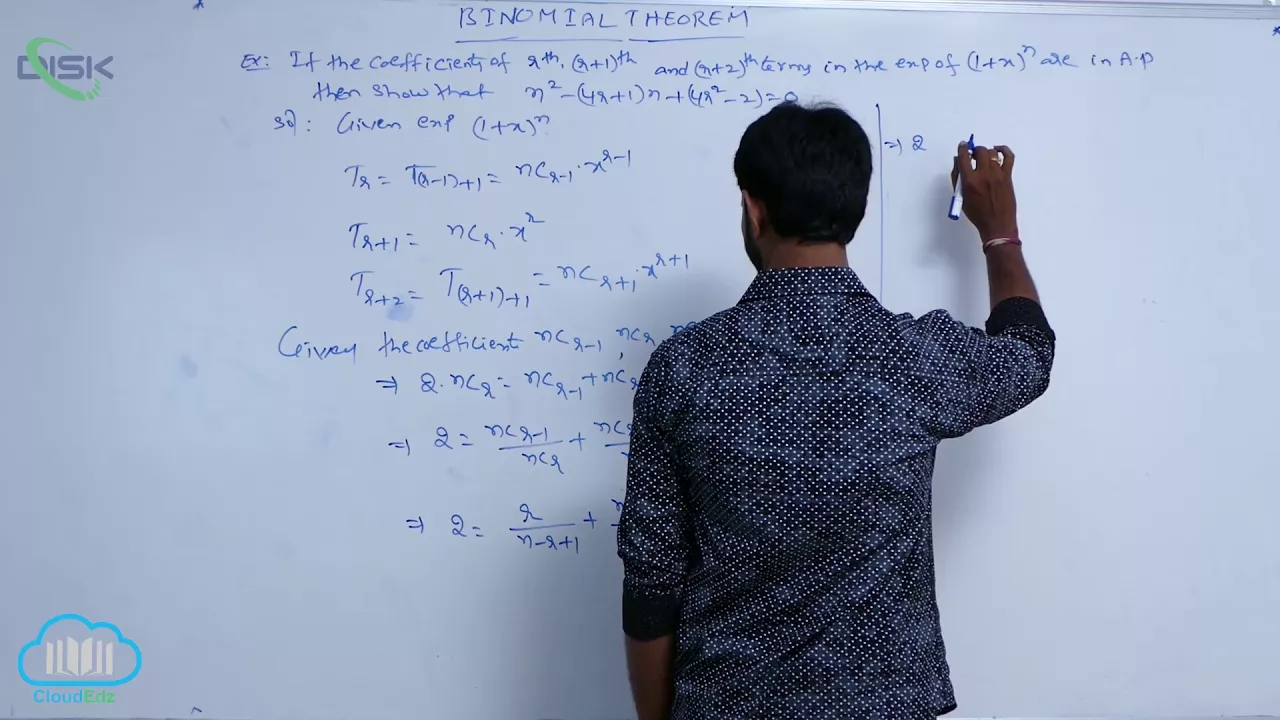 BINOMIAL THEOREM
DISK
Ex: If the coefficients of rth, (r+1)th and (r+2)th terms in the exp of (1+x)^n are in A.P
then show that n² - (4r+1)n + (4r² - 2) = 0
Sol: Given exp (1+x)^n
T_r = T_(r-1)+1 = nC_r-1 · x^r-1
T_r+1 = nC_r · x^r
T_r+2 = T_(r+1)+1 = nC_r+1 · x^r+1
Given the coefficient nC_r-1, nC_r
⇒ 2·nC_r = nC_r-1 + nC_r
⇒ 2 = nC_r-1/nC_r + nC
⇒ 2 = r/n-r+1 +
⇒ 2
CloudEdz